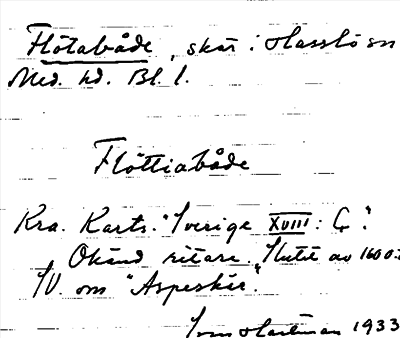 Flötabåde, skär i Hasslö sn
Med. hd. Bl. l.
Flöttiabåde
Kra. Karts. "Sverige XVIII: Ç".
Okänd ritare. Slutet av 1600:
SV. om "Aspeskär".
1933